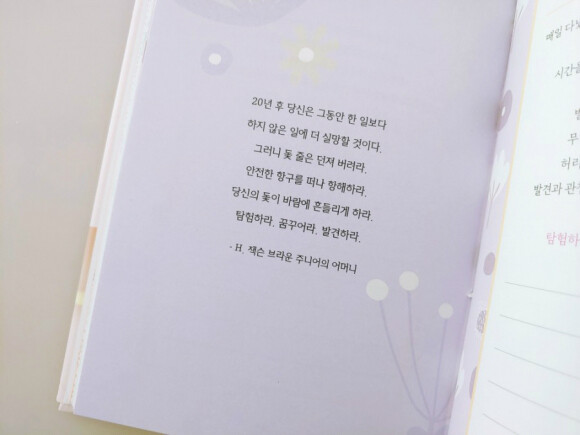 20년 후 당신은 그동안 한 일보다
하지 않은 일에 더 실망할 것이다.
그러니 돛 줄은 던져 버려라.
안전한 항구를 떠나 항해하라.
당신의 돛이 바람에 흔들리게 하라.
탐험하라. 꿈꾸어라. 발견하라.
- H. 잭슨 브라운 주니어의 어머니
매일
시간을
무
허리
발견과
탐험하